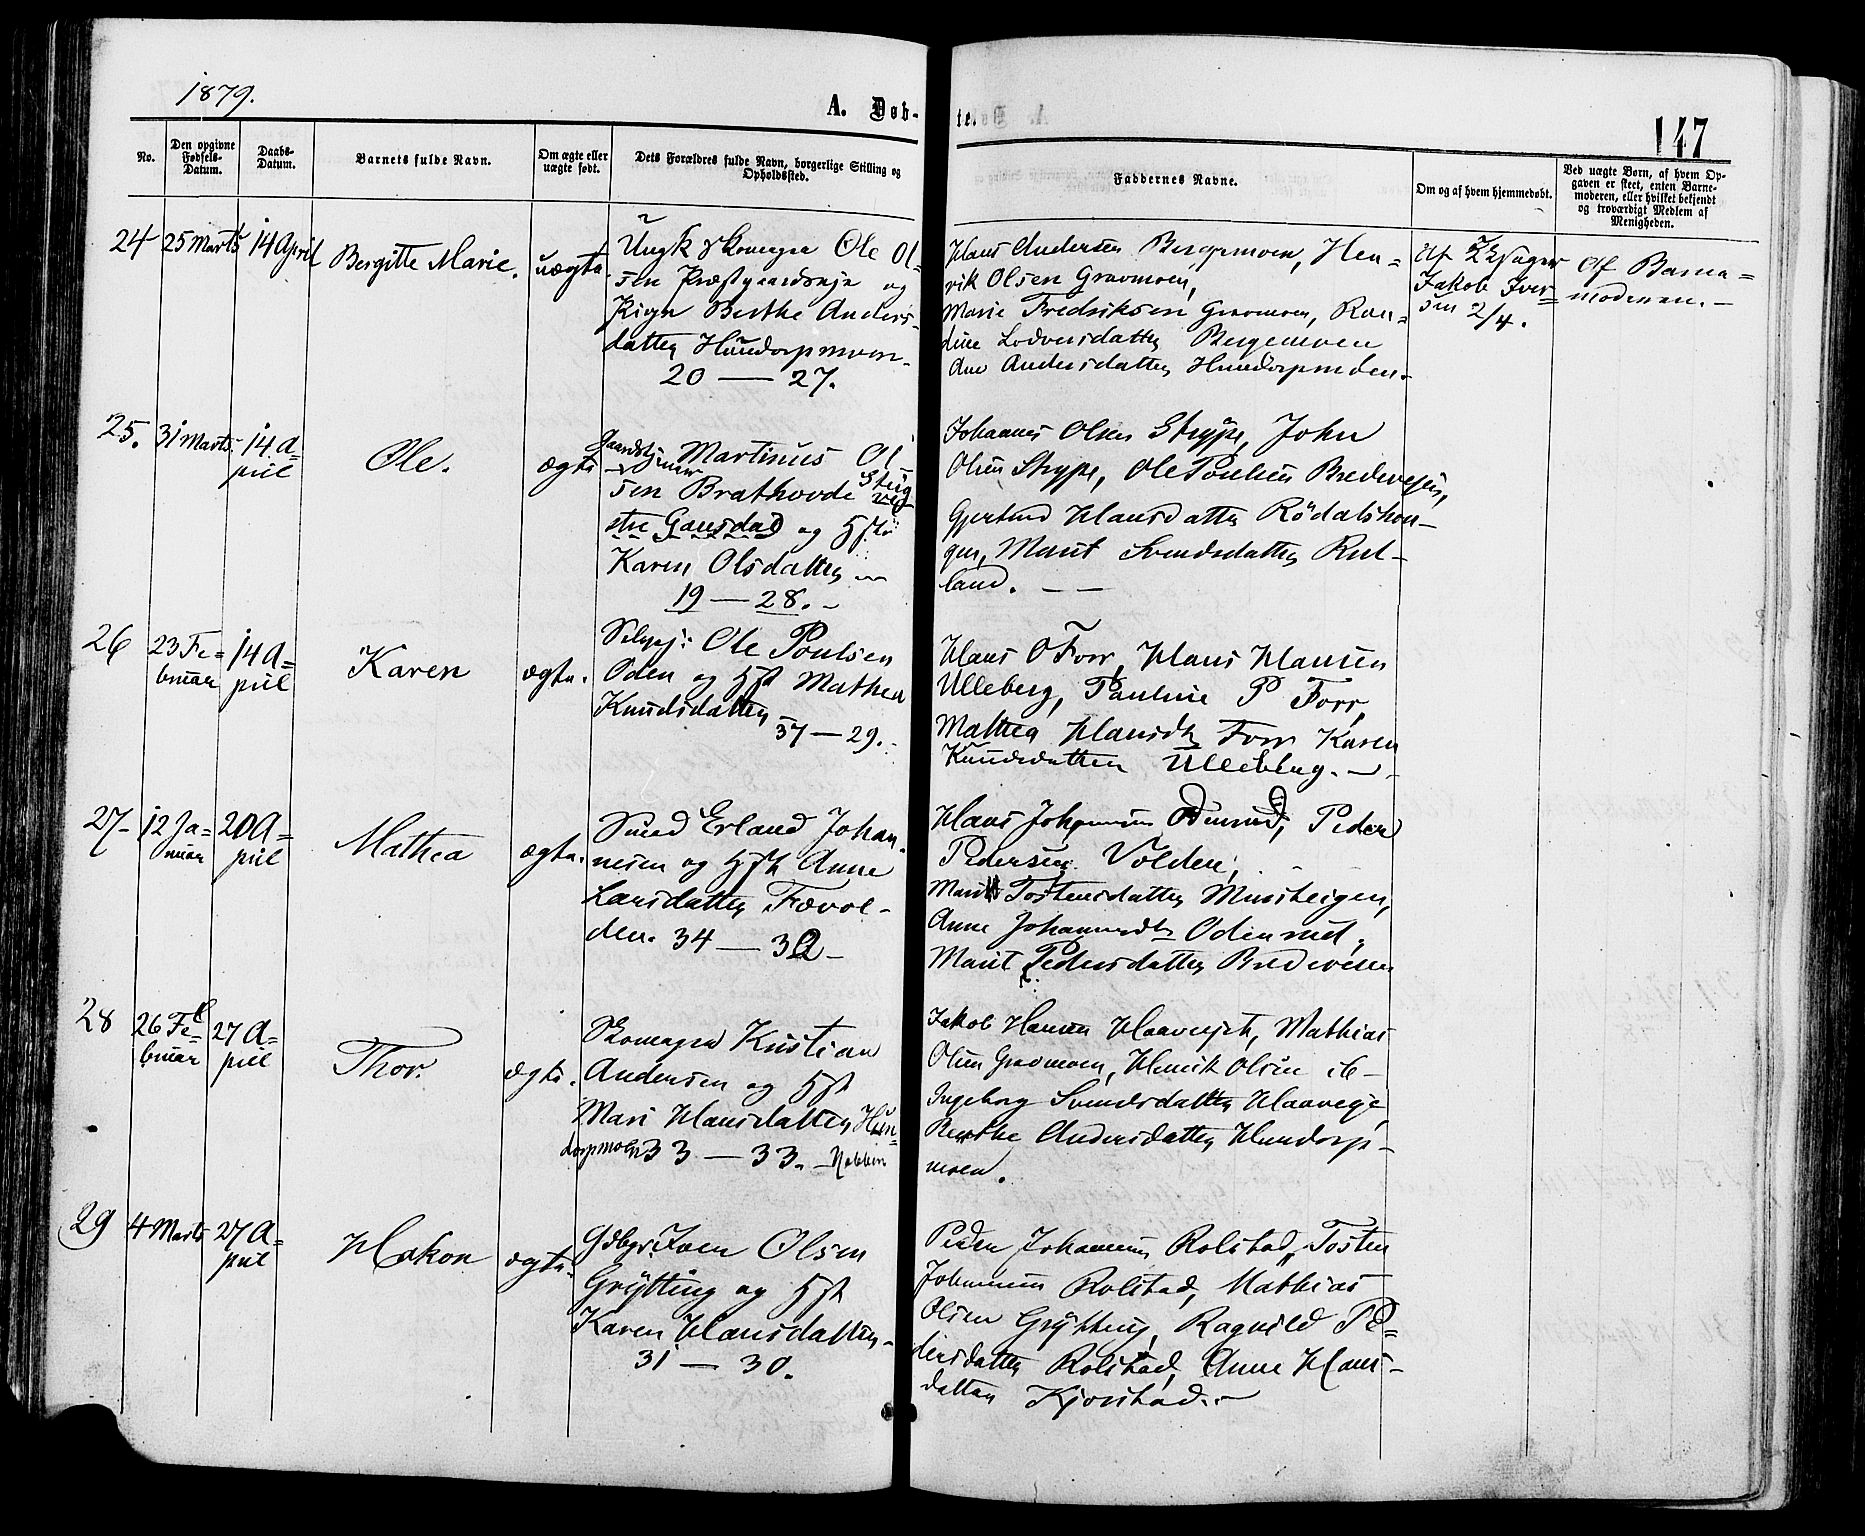 1879.
A. Døb-
te.
147
No.
Den opgivne Fødsels-Datum.
Daabs-Datum.
Barnets fulde Navn.
Om ægte eller uægte født.
Dets Forældres fulde Navn, borgerlige Stilling og Opholdssted.
Faddernes Navne.
Om og af hvem hjemmedøbt.
Ved uægte Børn, af hvem Op-
gaven er skeet, enten Barne-
moderen, eller hvilket bekjendt
og troværdigt Medlem af
Menigheden.
24
25 Marts
14 April
Bergitte Marie.
uægte.
Ungk Skomager Ole Ol=
sen Præstgaardseje og
Pigen Berthe Anders-
datter Hundorpmoen.
20 — 27.
Hans Andersen Bergemoen, Hen=
rik Olsen Gravmoen,
Marie Fredriksen Gravmoen, Ran=
dine Lodversdatter Bergemoen
Ane Andersdatter Hundorpmoen.
Jakob Iver=
sen 2/4.
Af Barne=
moderen. —
25.
31 Marts.
14 A=
pril
Ole.
ægte
Martinus Ol
sen Brathovde
stre Gausdad og Hst
Karen Olsdatter
19 — 28. —
Johannes Olsen Strype, John
Olsen Strype, Ole Poulsen Bredevejen,
Gjertrud Hansdatter Rödalshou-
gen, Marit Svendsdatter Rut-
land. — —
26
23 Fe=
bruar
14 A=
pril
Karen
ægte.
Selvej: Ole Poulsen
Oden og Hst Mathea
Knudsdatter
37 — 29. -
Hans O Forr, Hans Hansen
Ulleberg, Pauline P Forr,
Mathea Hansdt Forr Karen
Knudsdatter Ulleberg. —
27-
12 Ja=
nuar
20 A=
pril
Mathea
ægte.
Smed Erland Johan-
nesen og Hst Anne
Larsdatter Fævol-
den. 34 — 32 —
Hans Johannesen Odinrud, Peder
Pedersen Volden,
Marit Tostensdatter
Anne Johannesdt Odinrud,
Marit Pedersdatter Bredevejen
28
26 Fe=
bruar
27 A=
pril
Thor.
ægte.
Skomager Kristian
Andersen og Hst
Mari Hansdatter Hun=
dorpmoen 33 — 33.
Jakob Hansen Mathias
Olsen Gravmoen, Henrik Olsen ib—
Ingeborg Svendsdatter
Berthe Andersdatter Hundorp-
moen.
29
4 Marts
27 A=
pril
Hakon
ægte.
Gdbgr: Iver Olsen
Grytting og Hst
Karen Hansdatter.
31 — 30.
Peder Johannesen Rolstad, Tosten
Johannesen Rolstad, Mathias
Olsen Grytting, Ragnild Pe=
dersdatter Rolstad, Anne Hans-
datter Kjorstad. —